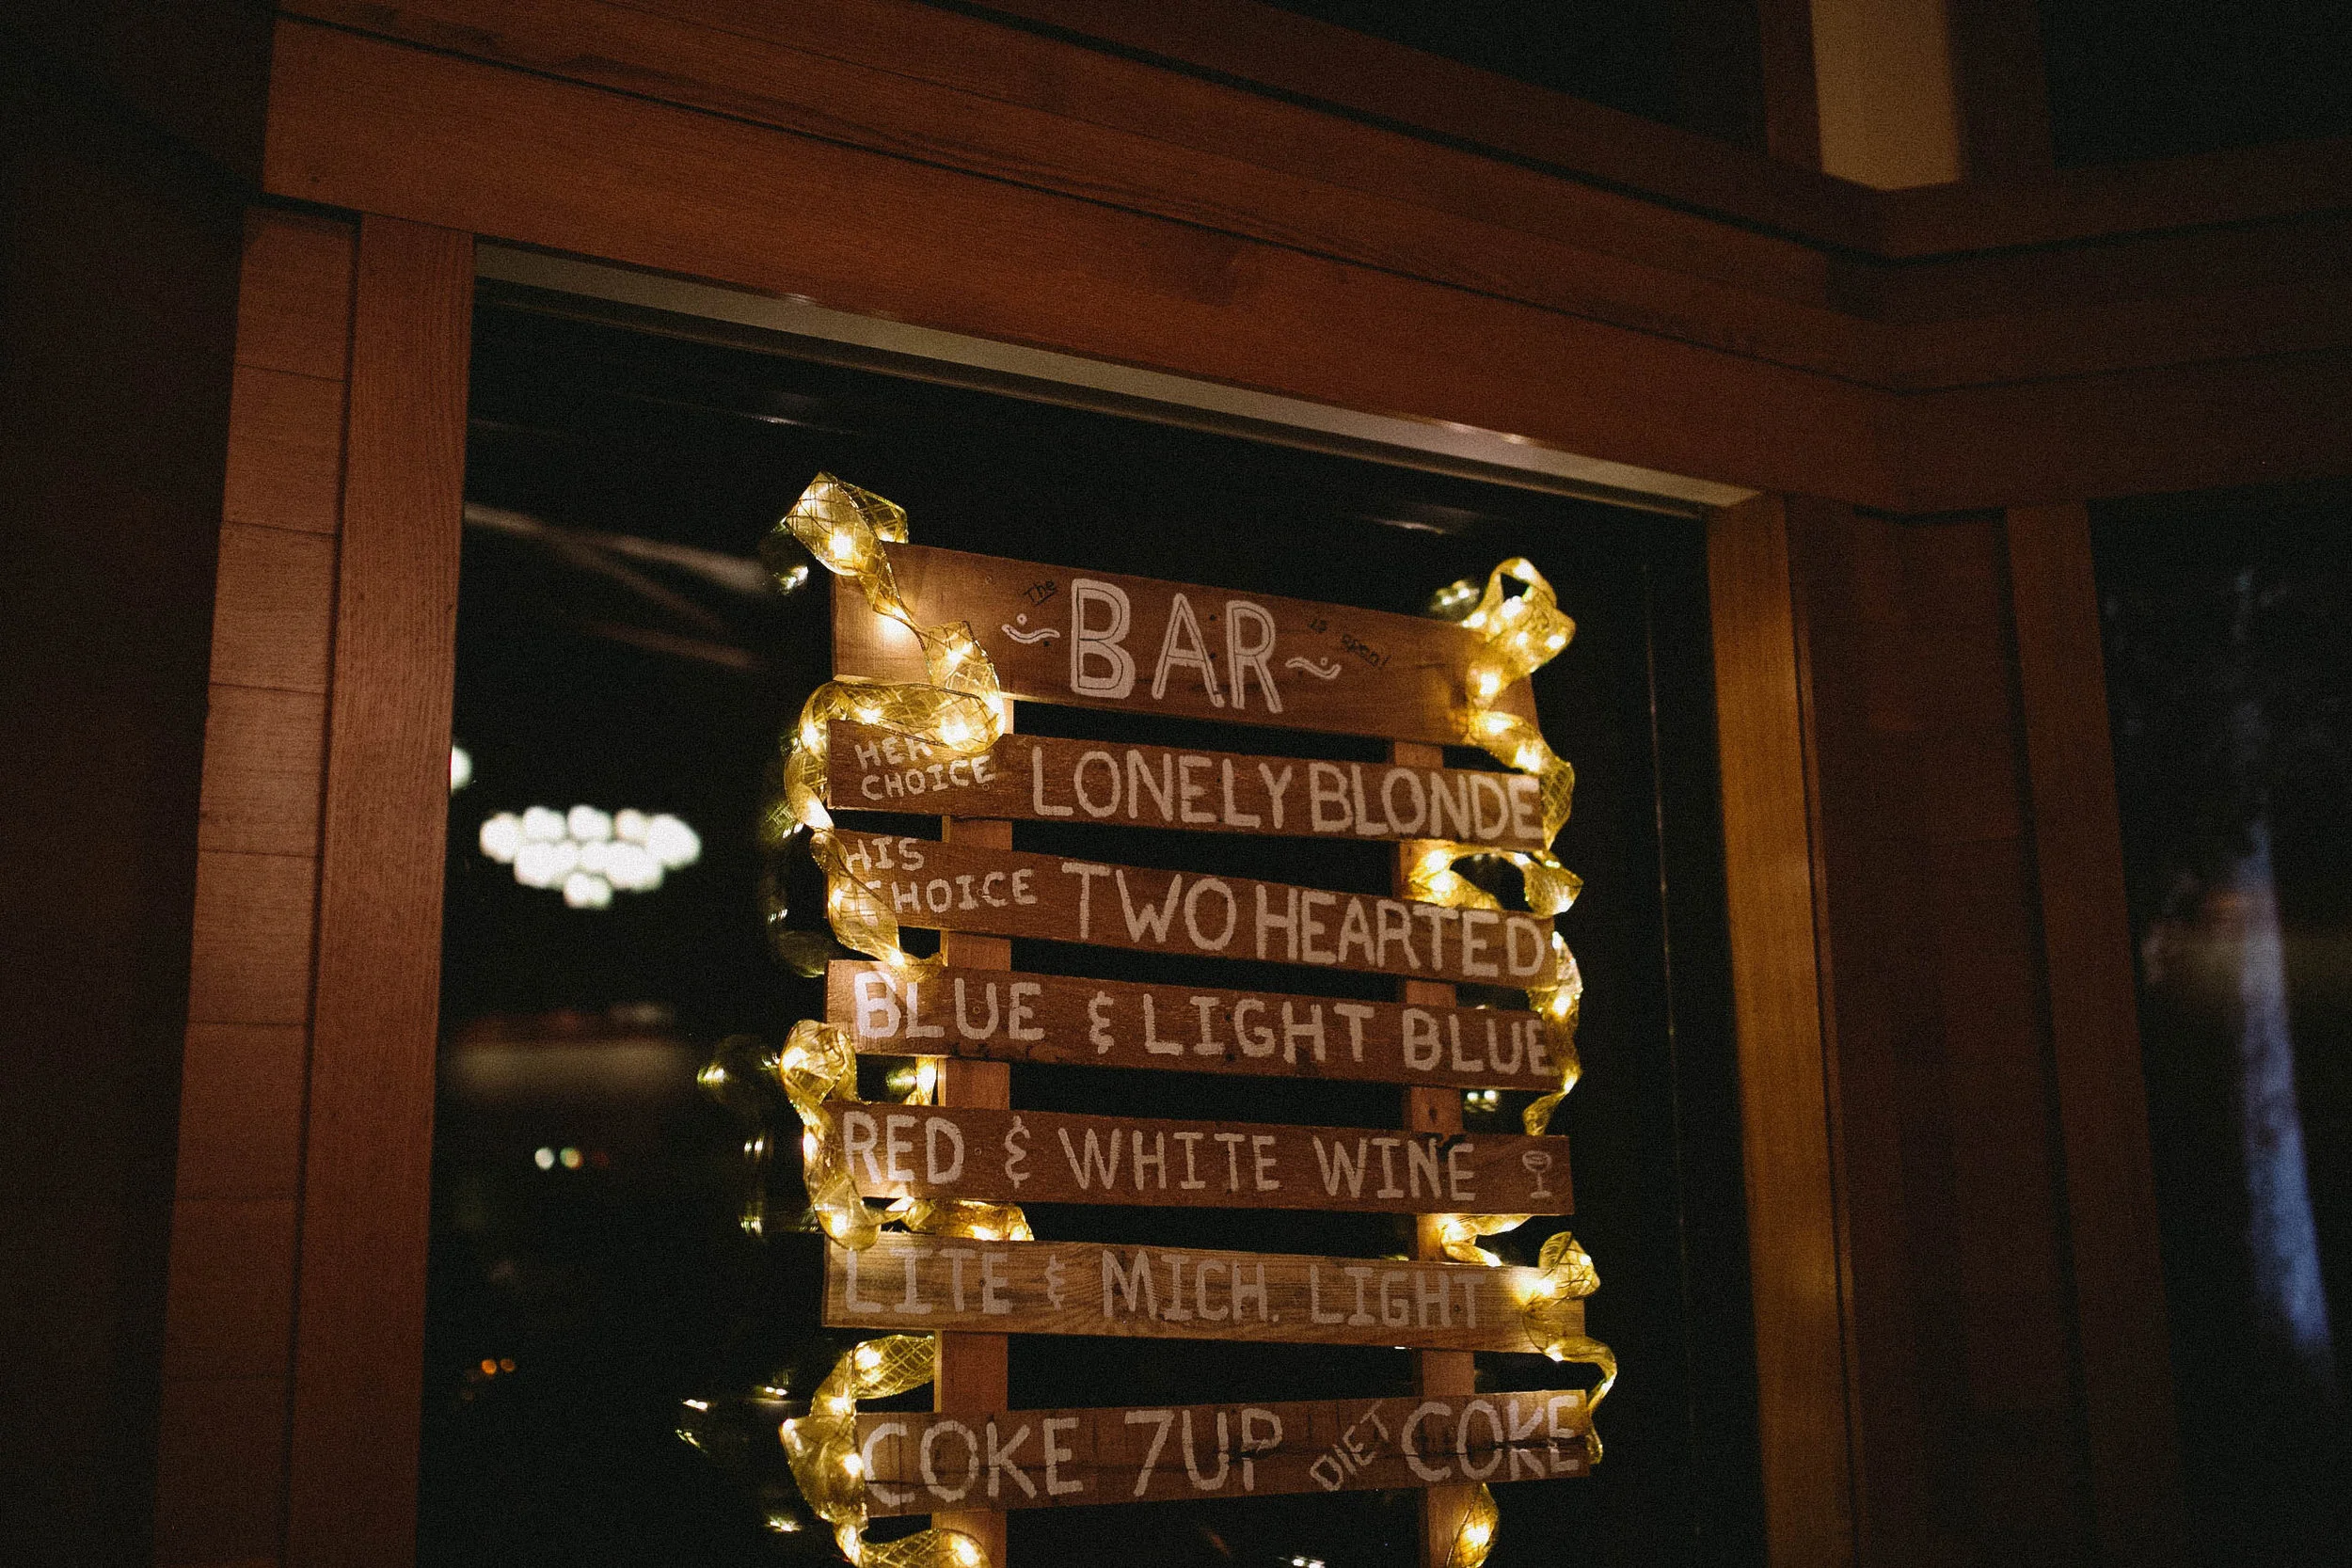 The
BAR
is open!
HER
CHOICE
LONELY BLONDE
HIS
CHOICE
TWO HEARTED
BLUE & LIGHT BLUE
RED & WHITE WINE
LITE & MICH. LIGHT
COKE 7UP DIET COKE